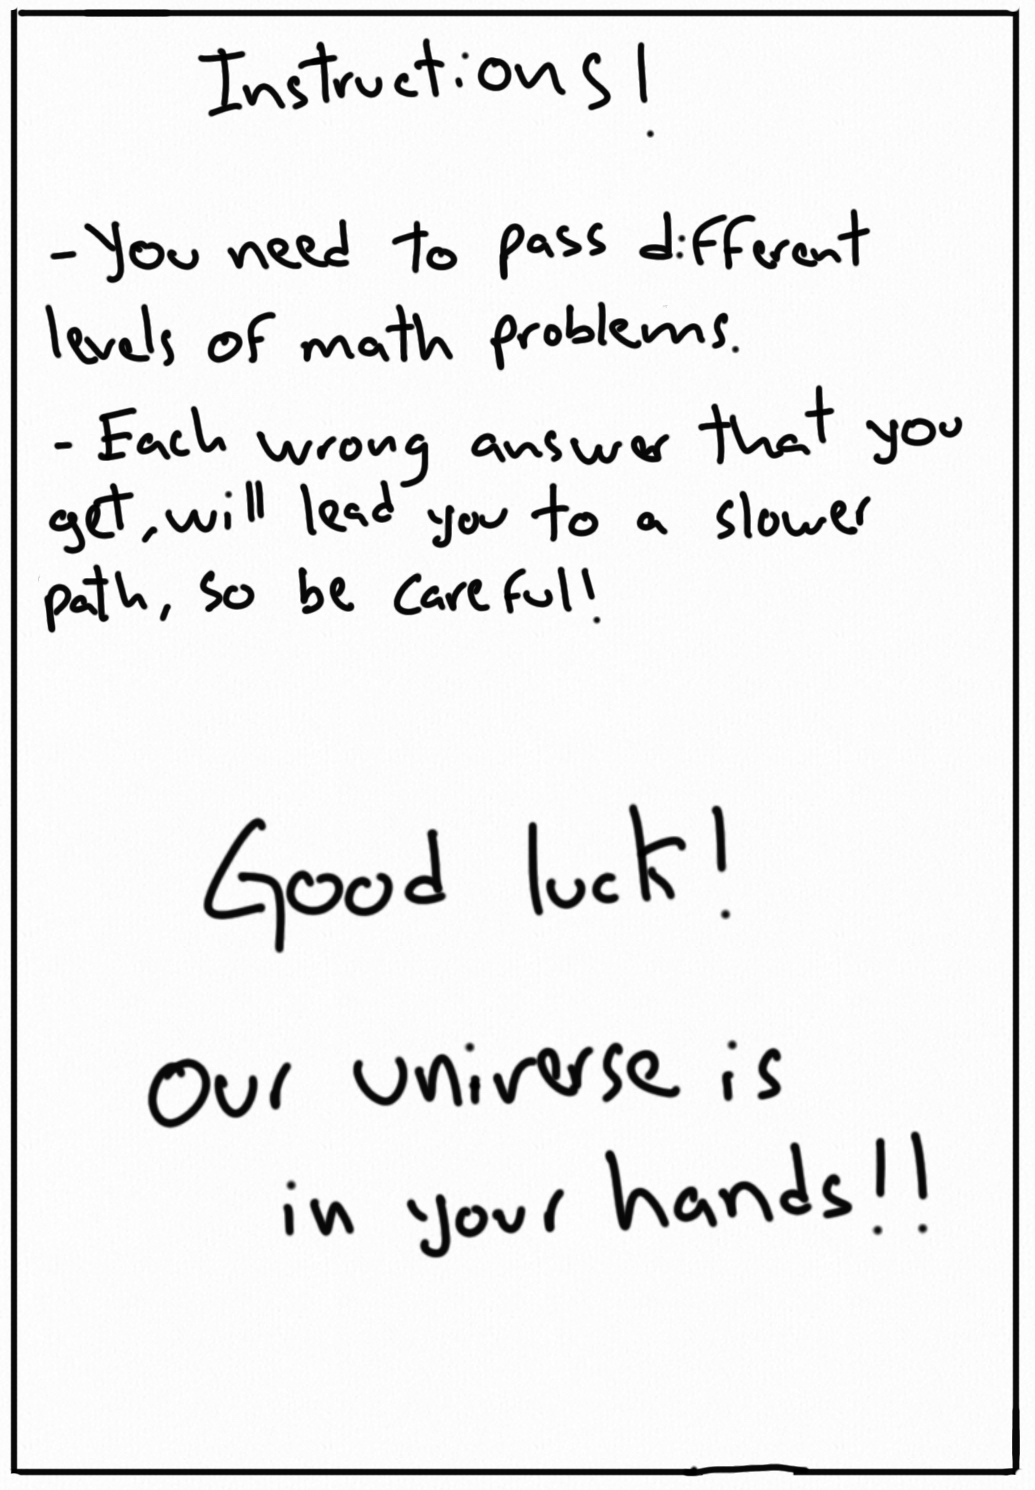 Instructions!
- You need to pass different
levels of math problems.
- Each wrong answer that you
get, will lead you to a slower
path, so be careful!
Good luck!
our universe is
in your hands!!